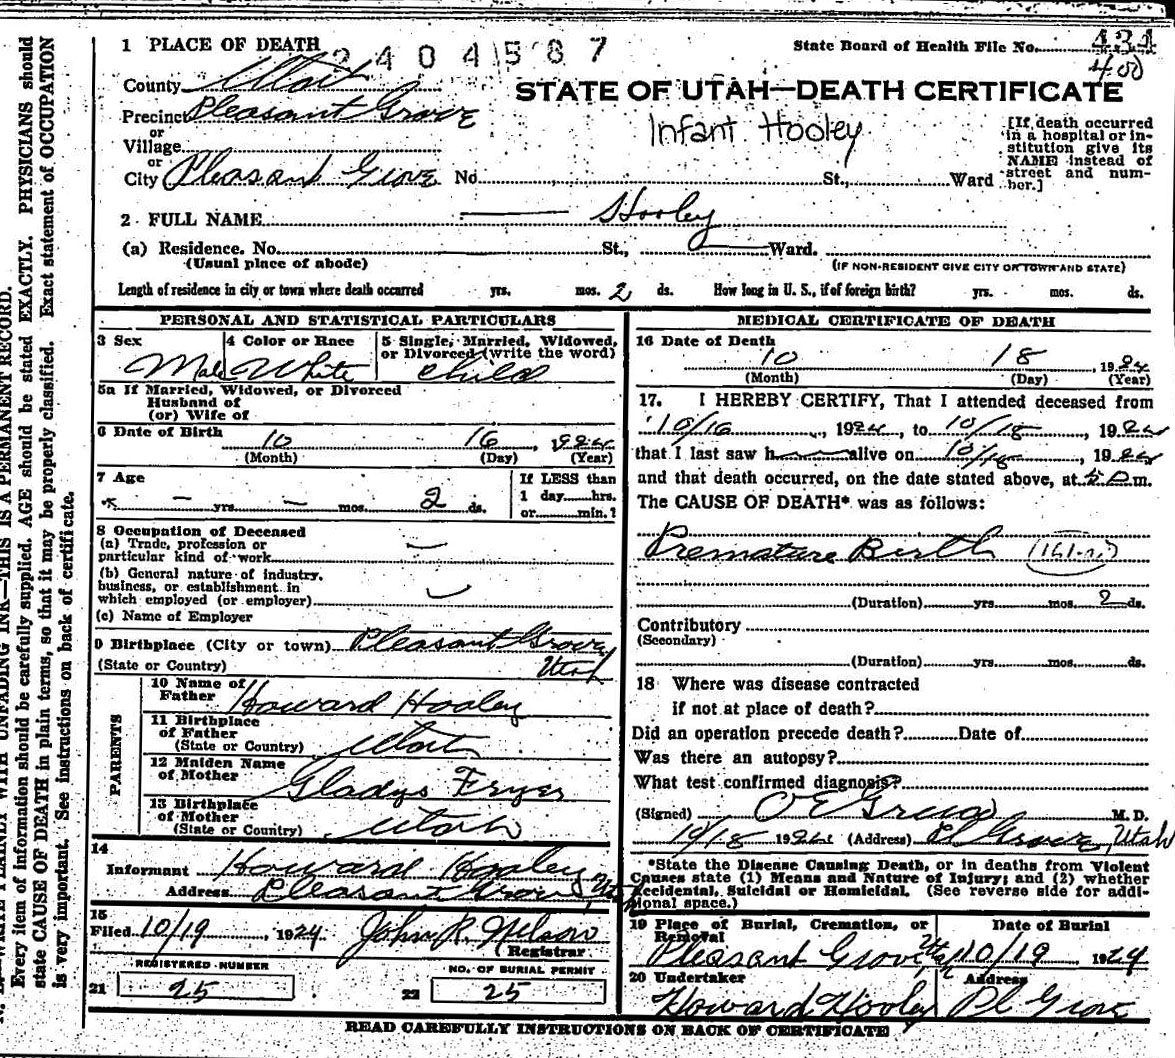 1 PLACE OF DEATH
2404587
State Board of Health File No. 434
400
County Utah
STATE OF UTAH—DEATH CERTIFICATE
Precinct Pleasant Grove
Infant Hooley
or
Village
or
City Pleasant Grove No. St., Ward
[If death occurred
in a hospital or in-
stitution give its
NAME instead of
street and num-
ber.]
2 FULL NAME Hooley
(a) Residence. No. St., Ward.
(Usual place of abode)
(IF NON-RESIDENT GIVE CITY OR TOWN AND STATE)
Length of residence in city or town where death occurred yrs. mos. 2 ds. How long in U. S., if of foreign birth? yrs. mos. ds.
PERSONAL AND STATISTICAL PARTICULARS
3 Sex
Male
4 Color or Race
White
5 Single, Married, Widowed,
or Divorced (write the word)
Child
5a If Married, Widowed, or Divorced
Husband of
(or) Wife of
6 Date of Birth
10 16, 1924
(Month) (Day) (Year)
7 Age
— yrs — mos. 2 ds.
If LESS than
1 day hrs.
or min.?
8 Occupation of Deceased
(a) Trade, profession or
particular kind of work
(b) General nature of industry,
business, or establishment in
which employed (or employer)
(c) Name of Employer
9 Birthplace (City or town) Pleasant Grove
(State or Country) Utah
PARENTS
10 Name of
Father Howard Hooley
11 Birthplace
of Father
(State or Country) Utah
12 Maiden Name
of Mother Gladys Fryer
13 Birthplace
of Mother
(State or Country) Utah
14
Informant Howard Hooley
Address Pleasant Grove, Ut
15
Filed 10/19, 1924 John R. Nelson
(Registrar
REGISTERED NUMBER
21 25
NO. OF BURIAL PERMIT
22 25
MEDICAL CERTIFICATE OF DEATH
16 Date of Death
10 18, 1924
(Month) (Day) (Year)
17. I HEREBY CERTIFY, That I attended deceased from
10/16, 1924, to 10/18, 1924
that I last saw h alive on 10/18, 1924
and that death occurred, on the date stated above, at m.
The CAUSE OF DEATH* was as follows:
Premature Birth
(Duration) yrs. mos. 2 ds.
Contributory
(Secondary)
(Duration) yrs. mos. ds.
18 Where was disease contracted
if not at place of death?
Did an operation precede death? Date of
Was there an autopsy?
What test confirmed diagnosis?
(Signed) O E Grua M. D.
10/18 1924 (Address) Pl Grove, Utah
*State the Disease Causing Death, or in deaths from Violent
Causes state (1) Means and Nature of Injury; and (2) whether
Accidental, Suicidal or Homicidal. (See reverse side for addi-
tional space.)
19 Place of Burial, Cremation, or
Removal
Pleasant Grove, Utah
Date of Burial
10/19 1924
20 Undertaker
Howard Hooley
Address
Pl Grove
READ CAREFULLY INSTRUCTIONS ON BACK OF CERTIFICATE
WRITE PLAINLY WITH UNFADING INK—THIS IS A PERMANENT RECORD.
Every item of information should be carefully supplied. AGE should be stated EXACTLY. PHYSICIANS should
state CAUSE OF DEATH in plain terms, so that it may be properly classified. Exact statement of OCCUPATION
is very important. See instructions on back of certificate.